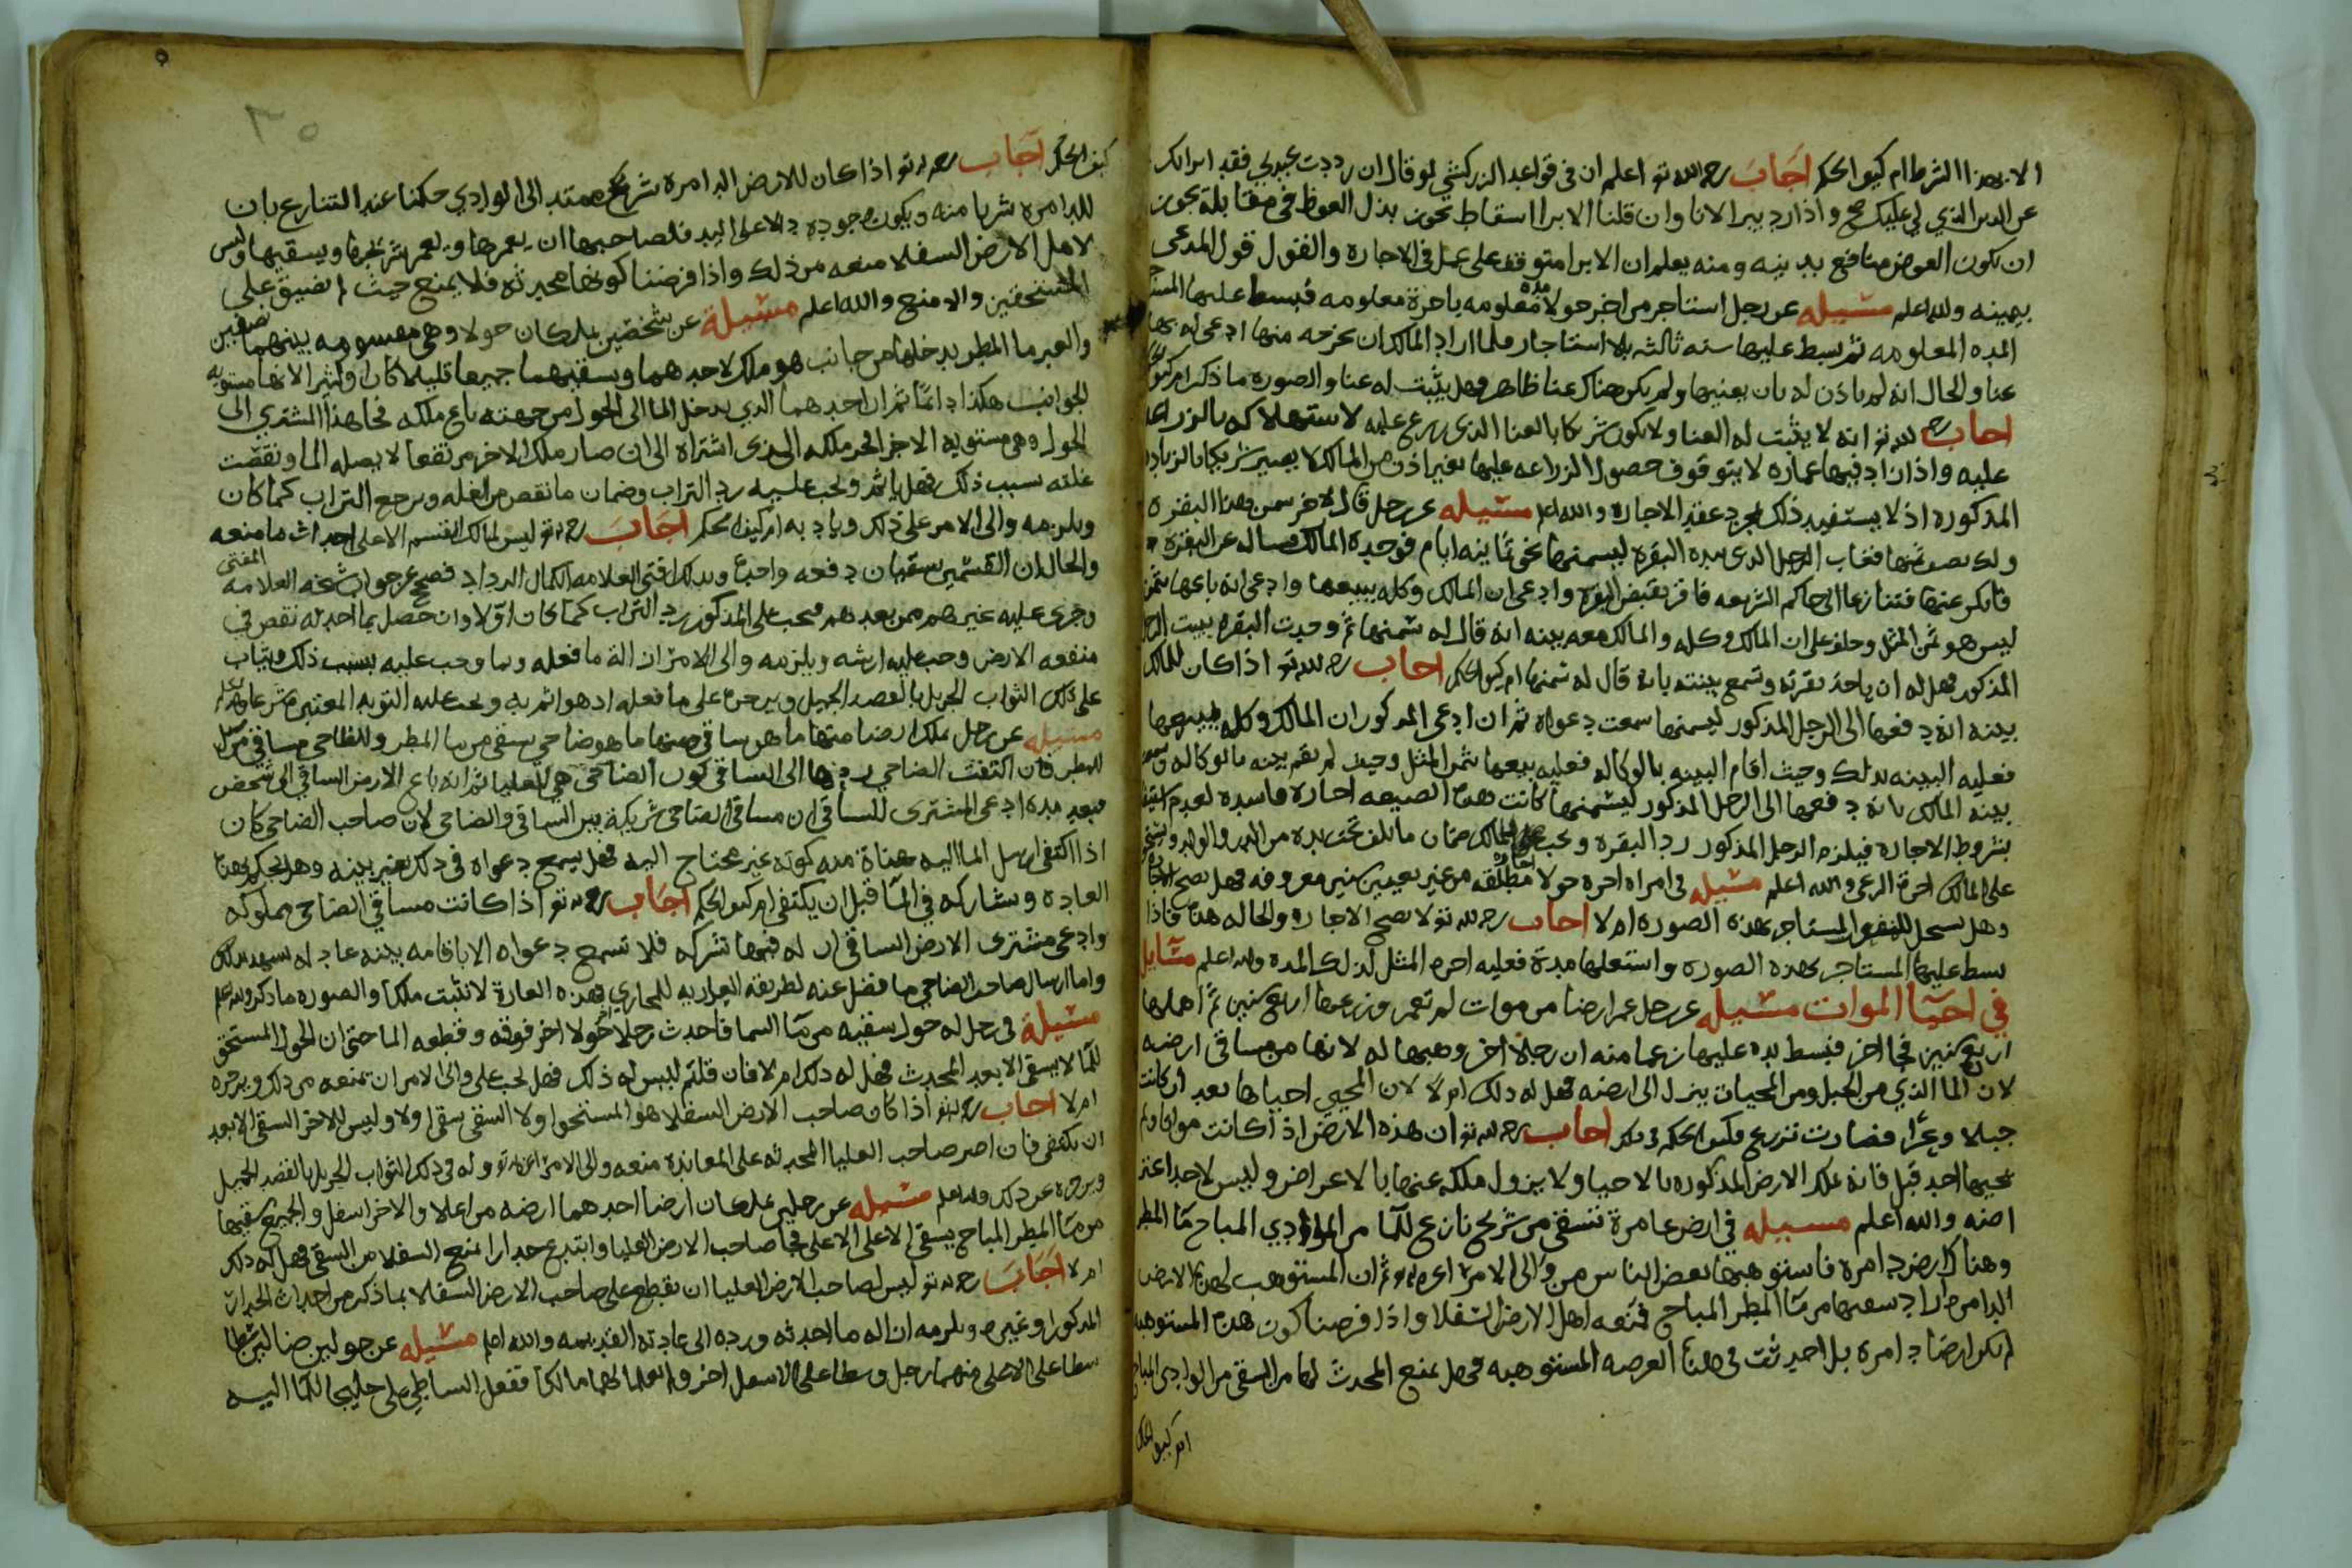 الا بهذا الشرط ام كيف الحكم اجاب رحمه الله تع اعلم ان في قواعد الزركشي لو قال ان رددت عبدي فقد ابراتك
عن الدين الذي لي عليك صح واذا رد يبرا لانا وان قلنا الابرا اسقاط يجوز بذل العوض في مقابلة يجوز
ان يكون العوض منافع بدينه ومنه يعلم ان الابرا متوقف على عمل في الاجاره والقول قول المدعى
بيمينه والله اعلم مسيله عن رجل استاجر من اخر حولا مده معلومه باجرة معلومه فبسط عليها
المده المعلومه ثم بسط عليها سنه ثالثه بلا استاجار فلما اراد المالك ان يخرجه منها ادعى ان له بها
عنا والحال انه لم ياذن له بان يعنيها ولم يكن هناك عنا ظاهر فهل يثبت له عنا والصوره ما ذكر ام كيف
اجاب رحمه الله تع انه لا يثبت له العنا ولا يكون شريكا بالعنا الذي عليه لاستهلاكه بالزراعه
عليه واذا زاد فيها عماره لا يتوقف حصول الزراعه عليها بغير اذن من المالك لا يصير شريكا بالزياده
المذكوره اذ لا يستفيد ذلك بمجرد عقد الاجاره والله اعلم مسيله عن رجل قال لاخر سمن هذه البقره
ولك نصف ثمنها فغاب الرجل الذي بيده البقره ليسمنها نحو ثمانيه ايام فوجده المالك فساله عن البقره
فانكر عنها فتنازعا الى حاكم الشريعه فاقر بقبض البقره وادعى ان المالك وكله ببيعها وادعى انه باعها بثمن
ليس هو ثمن المثل وحلف على ان المالك وكله والمالك معه بينه انه قال له سمنها ثم وجدت البقره ببيت الرجل
المذكور فهل له ان ياخذ بقرته وتسمع بينته بانه قال له سمنها ام كيف الحكم اجاب رحمه الله تع اذا كان للمالك
بينه انه دفعها الى الرجل المذكور ليسمنها سمعت دعواه ثم ان ادعى المذكور ان المالك وكله ببيعها
فعليه البينه بذلك وحيث اقام البينه بالوكاله فعليه بيعها بثمن المثل وحيث لم يقم بينه بالوكاله
بينه المالك بانه دفعها الى الرجل المذكور ليسمنها كانت هذه الصيغه اجاره فاسده لعدم
بشروط الاجاره فيلزم الرجل المذكور رد البقره ويجب للمالك ضمان ما تلف تحت يده من الدر والولد
على المالك اجرة الرعي والله اعلم مسيله في امراه اجره حولا اجاره مطلقه من غير تعيين سنين معروفه فهل تصح الاجاره
وهل يستحل المستاجر بهذه الصوره ام لا اجاب رحمه الله تع لا تصح الاجاره والحاله هذه فاذا
بسط عليها المستاجر بهذه الصوره واستغلها مدة فعليه اجره المثل لذلك المده والله اعلم مسايل
في احيا الموات مسيله عن رجل عمر ارضا من موات لم تعمر وزرعها اربع سنين ثم اهملها
اربع سنين فجا اخر فبسط يده عليها زعما منه ان رجلا اخر وهبها له لانها من مساقي ارضه
لان الما الذي من الجبل ومن المحيات ينزل الى ارضه فهل له ذلك ام لا لان المحيي احياها بعد ان كانت
جبلا وعرا فصارت تزرع فكيف الحكم في ذلك اجاب رحمه الله تع ان هذه الارض اذا كانت مواتا ولم
يحييها احد قبل فانه يملك الارض المذكوره بالاحيا ولا يزول ملكه عنها بالاعراض وليس لاحد
منه والله اعلم مسيله في ارض عامرة تسقى من شريج نازع للما من الوادي المباح ما المطر
وهناك ارض دامره فاستوهبها بعض الناس من والي الامر ثم ان المستوهب لهذه الارض
الدامره اراد سقيها من ما المطر المباح فمنعه اهل الارض السفلا واذا فرضنا كون هذه المستوهبه
لم تكن ارضا دامره بل احدثت في هذا العرصه المستوهبه فهل يمنع المحدث لها من السقي من الوادي المباح
ام كيف الحكم
٣٥
كيف الحكم اجاب رحمه الله تع اذا كان للارض الدامره شريج ممتد الى الوادي حكمنا عند التنازع بان
للدامره شربا منه ويكون وجوده دالا على اليد فلصاحبها ان يعمرها ويعمر شريجها ويسقيها وليس
لاهل الارض السفلا منعه من ذلك واذا فرضنا كونها محدثه فلا يمنع حيث لم تضيق على
المستحقين والا منع والله اعلم مسيلة عن شخصين يملكان حولا وهي مقسومه بينهما نصفين
والعبر ما المطر يدخلها من جانب هو ملك لاحدهما ويسقيهما جميعا قليلا كان او كثير الا انها مستويه
الجوانب هكذا دائما ثم ان احدهما الذي يدخل الما الى الحول من جهته باع ملكه فجا هذا المشتري الى
الحول وهي مستويه الاجزا فحر ملكه الذي اشتراه الى ان صار ملك الاخر مرتفعا لا يصله الما ونقصت
غلته بسبب ذلك فهل ياثم ويجب عليه رد التراب وضمان ما نقص من الغله ويرجع التراب كما كان
ويلزمه والي الامر على ذلك ويادبه ام كيف الحكم اجاب رحمه الله تع ليس لمالك القسم الاعلى احداث ما منعه
والحال ان القسمين سقيان دفعه واحده وبذلك افتى العلامه الكمال الرداد فصح عن جواب شيخه العلامه المفتي
وجرى عليه غيرهم ممن بعدهم فيجب على المذكور رد التراب كما كان اولا وان حصل بما احدثه نقص في
منفعه الارض وجب عليه ارشه ويلزمه والي الامر ازالة ما فعله وما وجب عليه بسبب ذلك ويثاب
على ذلك الثواب الجزيل بالقصد الجميل ويزجره على ما فعله اذ هو اثم به ويجب عليه التوبه المعتبره شرعا والله اعلم
مسيله عن رجل ملك ارضا منها ما هو ساقي ومنها ما هو ضاحي يسقى من ما المطر وللضاحي مساقي من سيل
المطر فان اكتفت الضاحي ردها الى الساقي كون الضاحي هي العليا ثم انه باع الارض الساقي الى شخص
فبعد مده ادعى المشتري للساقي ان مساقي الضاحي شريكة بين الساقي والضاحي لان صاحب الضاحي كان
اذا اكتفى ارسل الما اليه هناة منه كونه غير محتاج اليه فهل يسمع دعواه في ذلك بغير بينه وهل يحكم بهذا
العاده ويشاركه في الما قبل ان يكتفي ام كيف الحكم اجاب رحمه الله تع اذا كانت مساقي الضاحي مملوكه
وادعى مشتري الارض الساقي ان له فيها شركه فلا تسمع دعواه الا باقامه بينه عادله تشهد بذلك
واما ارسال صاحب الضاحي ما فضل عنه لطريقه العاريه للمجاري فهذه العارة لا تثبت ملكا والصوره ما ذكر والله اعلم
مسيلة في رجل له حول سقيه من ما السما فاحدث رجلا اخر حولا اخر فوقه وقطعه الما حتى ان الحول المستحق
للما لا يسقى الا بعد المحدث فهل له ذلك ام لا فان قلتم ليس له ذلك فهل يجب على والي الامر ان يمنعه من ذلك ويزجره
ام لا اجاب رحمه الله تع اذا كان صاحب الارض السفلا هو المستحق اولا السقي سقى اولا وليس للاخر السقي الا بعد
ان يكتفي فان اصر صاحب العليا المحدثه على المعانده منعه والي الامر اعزه الله تع وله في ذلك الثواب الجزيل بالقصد الجميل
ويزجره عن ذلك والله اعلم مسيله عن رجلين يملكان ارضا احدهما ارضه من اعلا والاخر اسفل والجميع سقيها
من ما المطر المباح يسقي الاعلى الاعلى فجا صاحب الارض العليا وابتدع جدارا يمنع السفلا من السقي فهل له ذلك
ام لا اجاب رحمه الله تع ليس لصاحب الارض العليا ان يقطع على صاحب الارض السفلا بما ذكر من احداث الجدار
المذكور او غيره ويلزمه ازاله ما احدثه ورده الى عادته القديمه والله اعلم مسيله عن حولين
على الاعلى منهما رجل وسطا على الاسفل اخر ففعل الساطي على جليها الما اليه